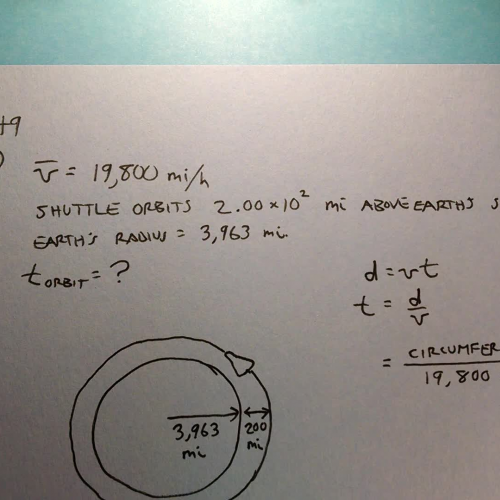 v̅ = 19,800 mi/h
SHUTTLE ORBITS 2.00×10² mi ABOVE EARTH'S
EARTH'S RADIUS = 3,963 mi.
t ORBIT = ?
d = vt
t = d/v
= CIRCUMFER / 19,800
3,963 mi
200 mi